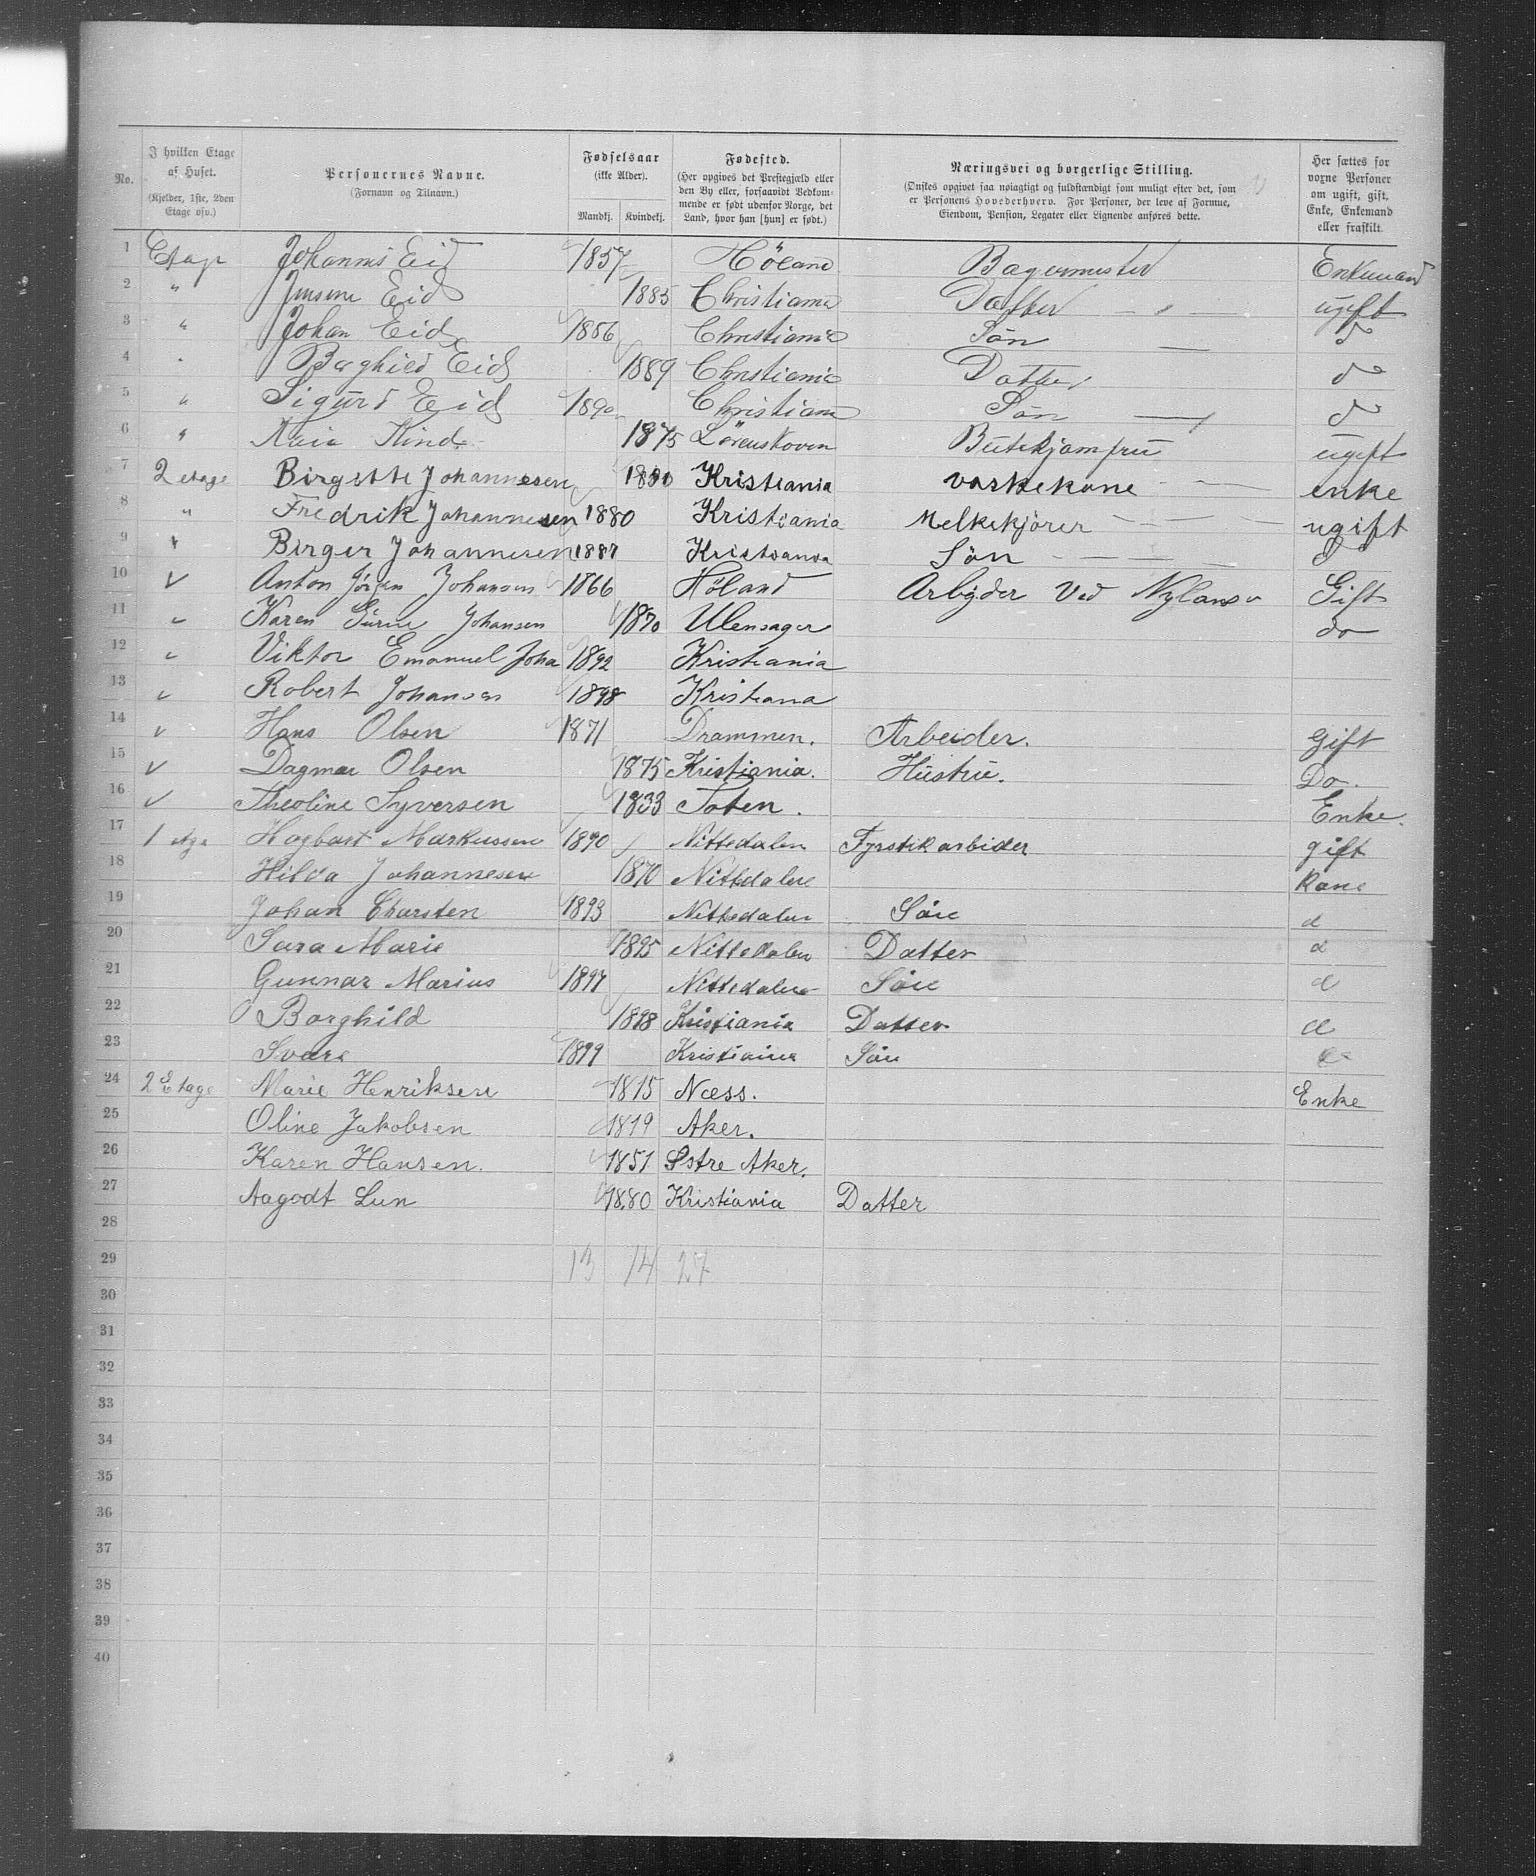 No. I hvilken Etage af Huset. (Kjelder, 1ste, 2den Etage osv.) Personernes Navne. (Fornavn og Tilnavn.) Fødselsaar (ikke Alder). Mandkj. Kvindekj. Fødested. (Her opgives det Præstegjæld eller den By eller, forsaavidt Vedkommende er født udenfor Norge, det Land, hvor han [hun] er født.) Næringsvei og borgerlige Stilling. (Ønskes opgivet saa nøiagtigt og fuldstændigt som muligt efter det, som er Personens Hovederhverv. For Personer, der leve af Formue, Eiendom, Pension, Legater eller Lignende anføres dette. Her sættes for voxne Personer om ugift, gift, Enke, Enkemand eller fraskilt.
1 Etage Johannes Eid 1857 Höland Bagermester Enkemand
2 " Eid 1885 Christiania Datter — " — ugift
3 " Johan Eid 1886 Christiania Sön — do
4 " Borghild Eid 1889 Christiania Datter do
5 " Sigurd Eid 1890 Christiania Sön — do
6 " 1875 Lörenskoven Butikjomfru ugift
7 2 etage Birgitte Johannesen Kristiania vaskekone — — enke
8 " Fredrik Johannesen 1880 Kristiania Melkekjörer — — ugift
9 " Birger Johannesen 1887 Kristiania Sön — — do
10 " Anton Jörgen Johansen 1866 Höland Arbejder ved Nyland Gift
11 " Karen Johansen 1870 Ulensager do
12 " Viktor Emanuel Joha 1892 Kristiania
13 " Robert Johansen 1898 Kristiana
14 " Hans Olsen 1871 Drammen. Arbeider. gift
15 " Dagmar Olsen 1875 Kristiania. Hustru. Do.
16 " Theoline Syversen 1833 Toten. Enke.
17 1 Hagbart Markussen 1890 Nittedalen Fyrstikarbider gift
18 Hilda Johannesen 1870 Nittedalen Kone
19 Johan Charsten 1893 Nittedalen Sön d
20 Sara Marie 1895 Nittedalen Datter d
21 Gunnar Marius 1897 Nittedalen Sön d
22 Borghild 1898 Kristiania Datter d
23 Svare 1899 Kristiania Sön
24 2 Etage Marie Henriksen 1815 Næss. Enke
25 Oline Jakobsen 1819 Aker.
26 Karen Hansen. 1851 Østre Aker.
27 Aagodt Lun 1880 Kristiania Datter
28
29 13 14 27
30
31
32
33
34
35
36
37
38
39
40